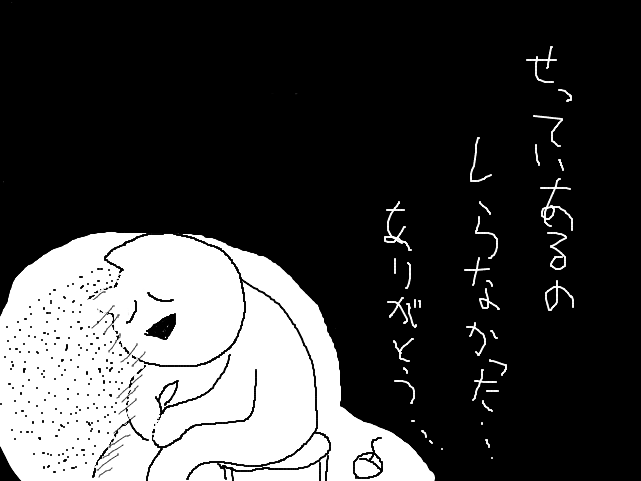 せっていあるの
しらなかった…
ありがとう…